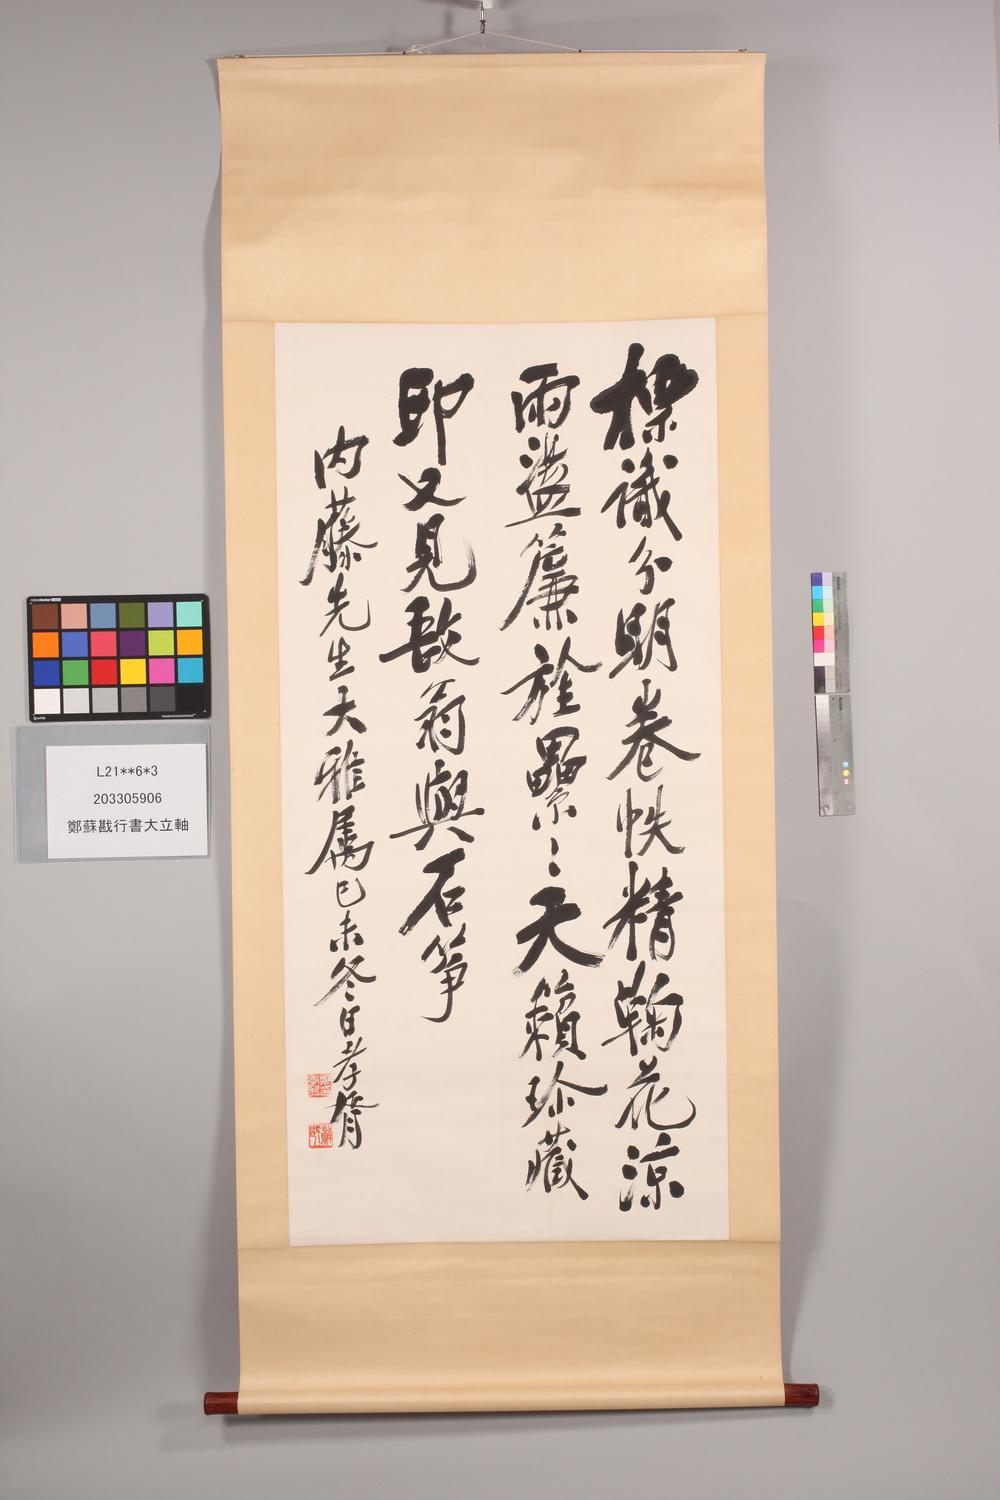 標識分明卷帙精鞠花涼
雨盪簾旌纍〻天籟珍藏
即又見敔翁與石箏
内藤先生大雅属己未冬日孝胥
L21**6*3
203305906
鄭蘇戡行書大立軸